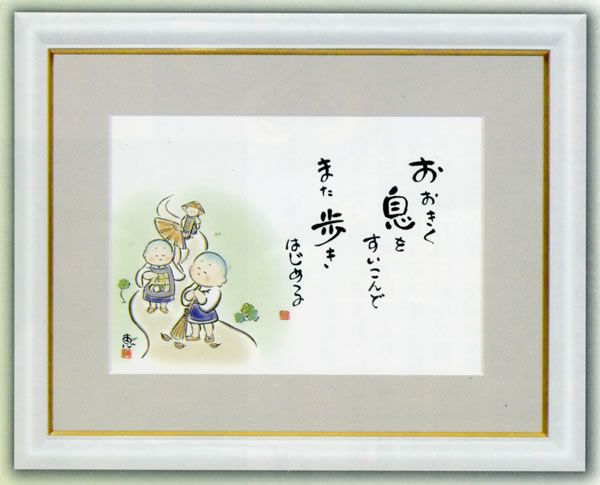 おおきく
息を
すいこんで
また歩き
はじめる
恵